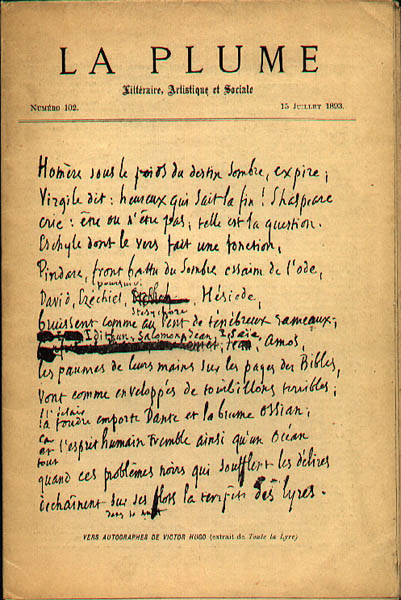 LA PLUME
Littéraire, Artistique et Sociale
NUMÉRO 102.
15 JUILLET 1893.
Homère sous le poids du destin sombre, expire ;
Virgile dit : heureux qui sait la fin ! Shaspeare
crie : être ou n'être pas ; telle est la question.
Eschyle dont le vers fait une fonction,
Pindare, front battu du sombre essaim de l'ode,
poursuivi
David, Ezéchiel, Hésiode,
Stésichore
bruissent comme au vent de ténébreux rameaux ;
Idithun, Salomon, Jean, Isaïe
Amos,
les paumes de leurs mains sur les pages des Bibles,
Vont comme enveloppés de tourbillons terribles ;
l'éclair
la foudre emporte Dante et la brume Ossian ;
et l'esprit humain tremble ainsi qu'un Océan
tout
quand ces problèmes noirs qui soufflent les délires
échaînent sur ses flots la tempête des lyres.
dans la
VERS AUTOGRAPHES DE VICTOR HUGO (extrait de Toute la Lyre)